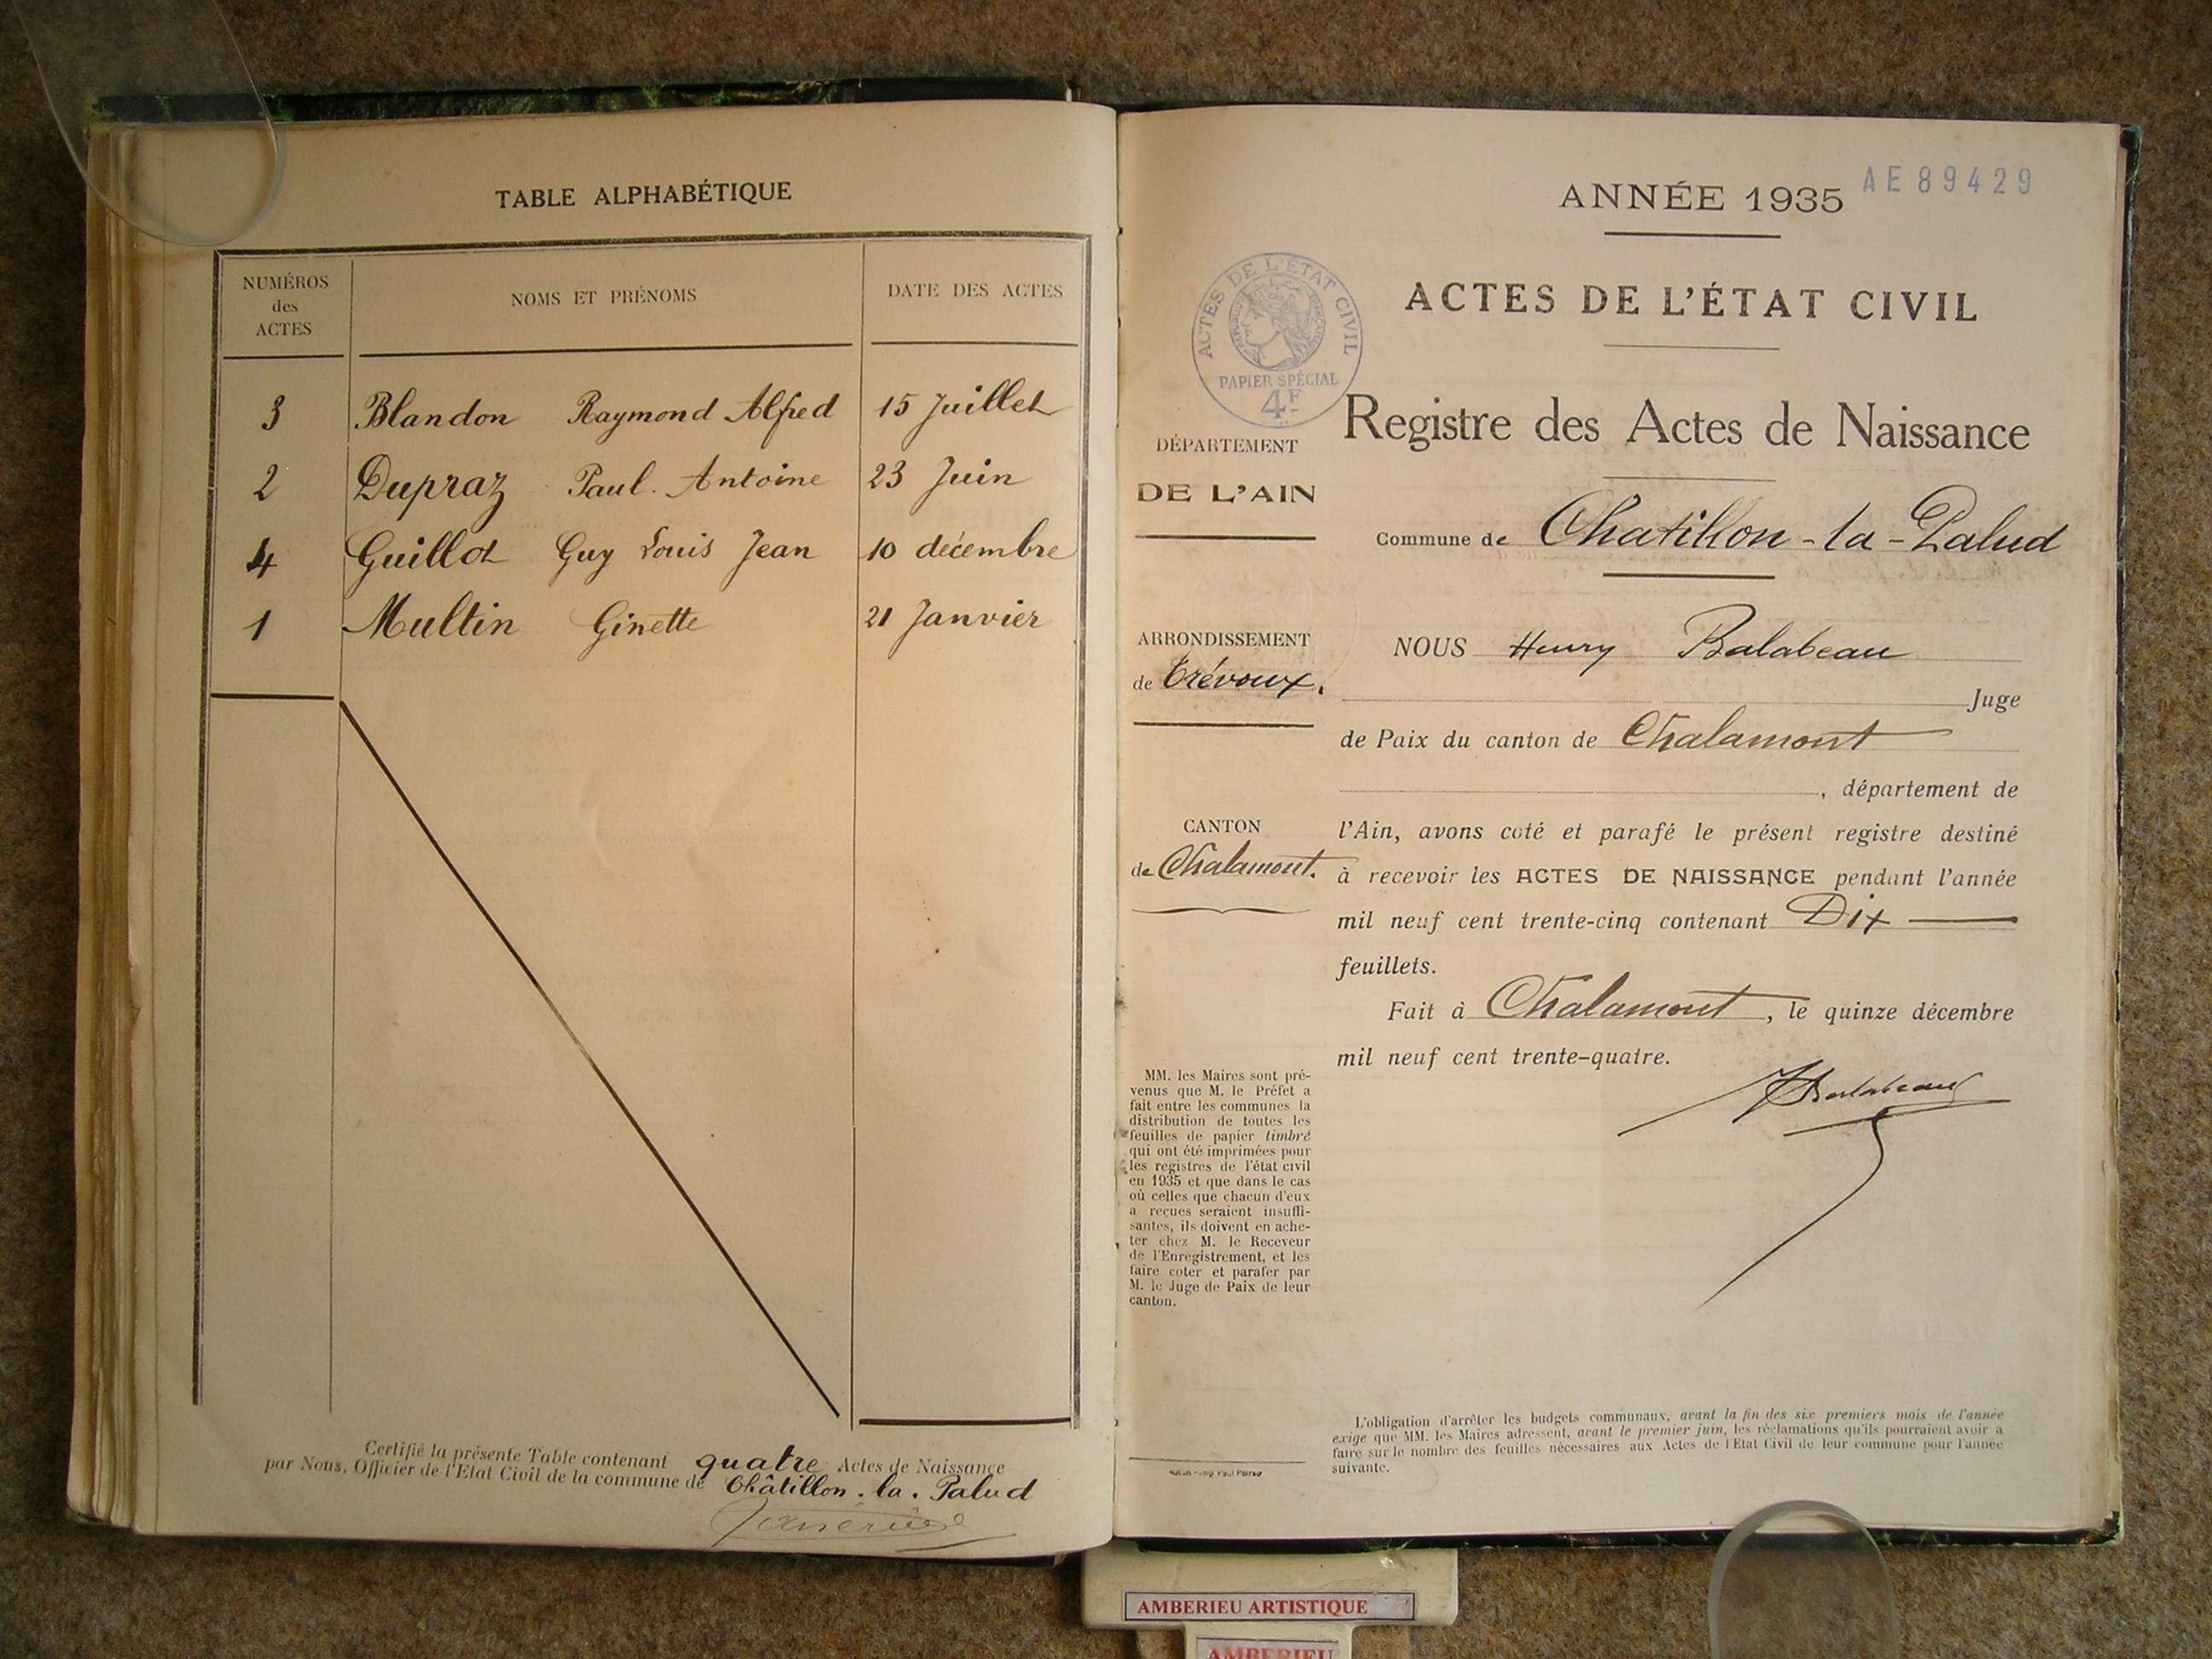 TABLE ALPHABÉTIQUE
NUMÉROS
des
ACTES
NOMS ET PRÉNOMS
DATE DES ACTES
3 Blandon Raymond Alfred 15 Juillet
2 Dupraz Paul. Antoine 23 Juin
4 Guillot Guy Louis Jean 10 décembre
1 Multin Ginette 21 Janvier
Certifié la présente Table contenant quatre Actes de Naissance
par Nous, Officier de l'Etat Civil de la commune de Châtillon.la.Palud
ANNÉE 1935
AE89429
ACTES DE L'ÉTAT CIVIL
ACTES DE L'ÉTAT CIVIL
PAPIER SPÉCIAL
4F
Registre des Actes de Naissance
DÉPARTEMENT
DE L'AIN
Commune de Chatillon-la-Palud
ARRONDISSEMENT
de Trévoux.
CANTON
de Chalamont.
NOUS Henry Balabeau
Juge
de Paix du canton de Chalamont
, département de
l'Ain, avons coté et parafé le présent registre destiné
à recevoir les ACTES DE NAISSANCE pendant l'année
mil neuf cent trente-cinq contenant Dix
feuillets.
Fait à Chalamont, le quinze décembre
mil neuf cent trente-quatre.
HBalabeau
MM. les Maires sont pré-
venus que M. le Préfet a
fait entre les communes la
distribution de toutes les
feuilles de papier timbré
qui ont été imprimées pour
les registres de l'état civil
en 1935 et que dans le cas
où celles que chacun d'eux
a reçues seraient insuffi-
santes, ils doivent en ache-
ter chez M. le Receveur
de l'Enregistrement, et les
faire coter et parafer par
M. le Juge de Paix de leur
canton.
L'obligation d'arrêter les budgets communaux, avant la fin des six premiers mois de l'année
exige que MM. les Maires adressent, avant le premier juin, les réclamations qu'ils pourraient avoir a
faire sur le nombre des feuilles nécessaires aux Actes de l'Etat Civil de leur commune pour l'année
suivante.
AMBERIEU ARTISTIQUE
AMBERIEU